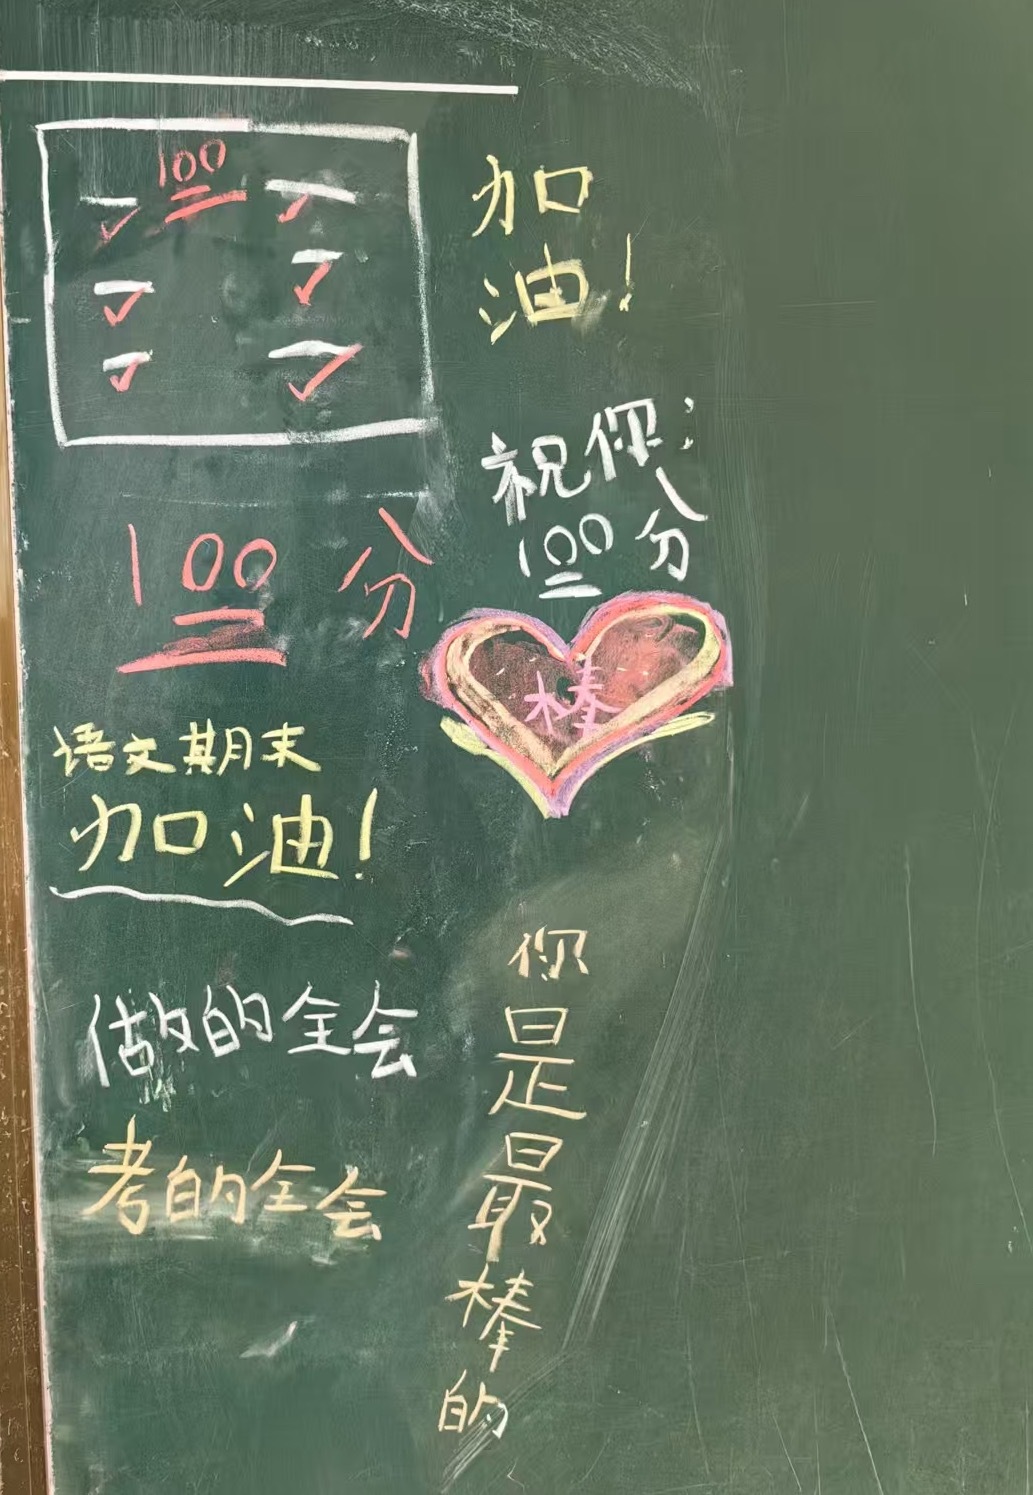 100
加
油！
祝你：
100分
100分
棒
语文期末
加油！
做的全会
考的全会
你
是
最
棒
的